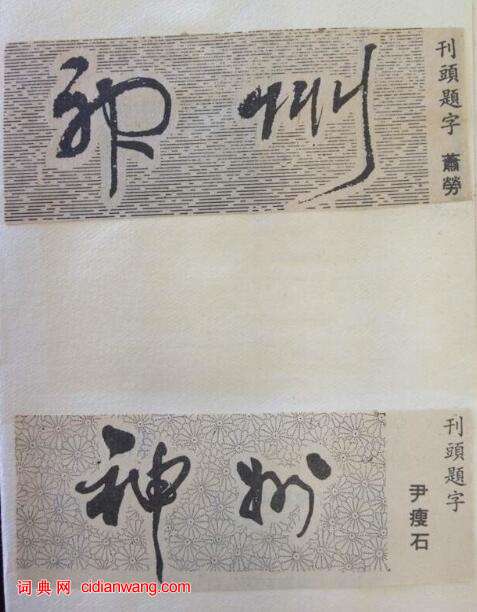 神州
刊頭題字 蕭勞
神州
刊頭題字
尹瘦石
词典网 cidianwang.com